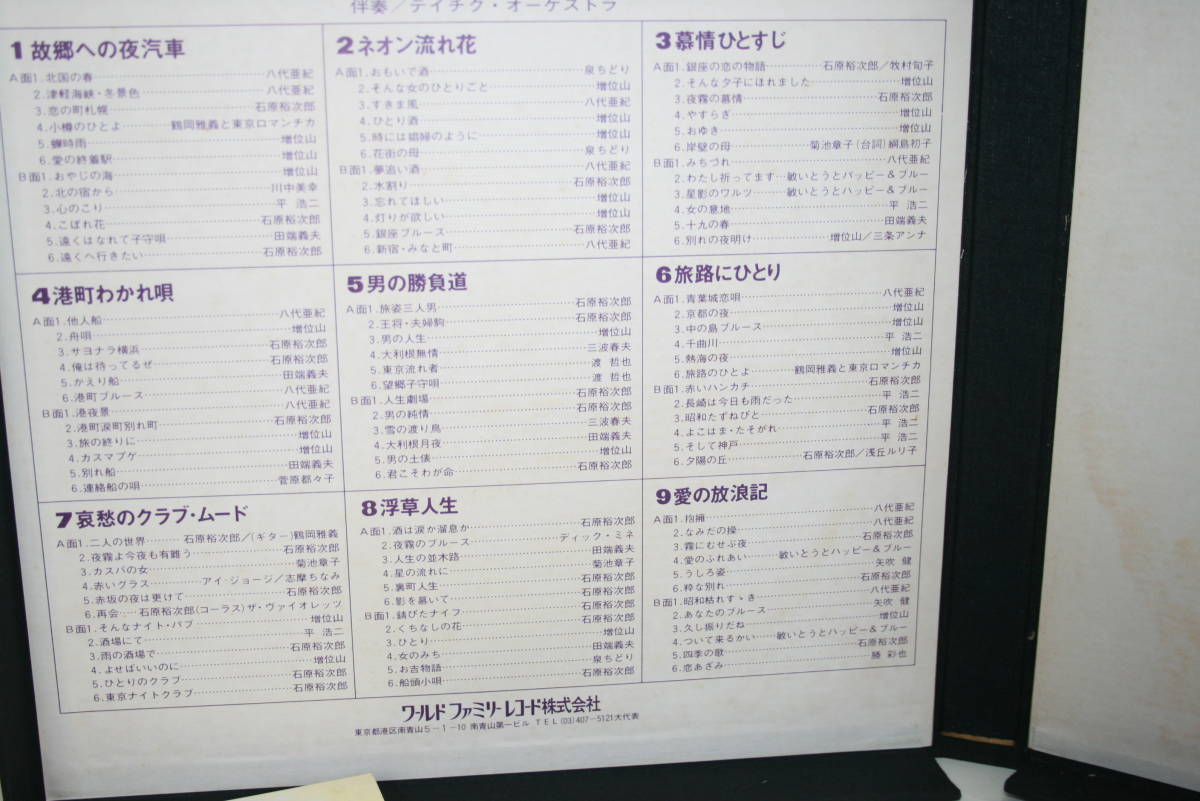 伴奏／テイチク・オーケストラ
1 故郷への夜汽車
A面1.北国の春 八代亜紀
2.津軽海峡・冬景色 八代亜紀
3.恋の町札幌 石原裕次郎
4.小樽のひとよ 鶴岡雅義と東京ロマンチカ
5.蝉時雨 増位山
6.愛の終着駅 増位山
B面1.おやじの海 増位山
2.北の宿から 川中美幸
3.心のこり 平 浩二
4.こぼれ花 石原裕次郎
5.遠くはなれて子守唄 田端義夫
6.遠くへ行きたい 石原裕次郎
2 ネオン流れ花
A面1.おもいで酒 泉ちどり
2.そんな女のひとりごと 増位山
3.すきま風 八代亜紀
4.ひとり酒 増位山
5.時には娼婦のように 増位山
6.花街の母 泉ちどり
B面1.夢追い酒 八代亜紀
2.水割り 石原裕次郎
3.忘れてほしい 増位山
4.灯りが欲しい 増位山
5.銀座ブルース 石原裕次郎
6.新宿・みなと町 八代亜紀
3 慕情ひとすじ
A面1.銀座の恋の物語 石原裕次郎／牧村旬子
2.そんな夕子にほれました 増位山
3.夜霧の慕情 石原裕次郎
4.やすらぎ 増位山
5.おゆき 増位山
6.岸壁の母 菊池章子(台詞)綱島初子
B面1.みちづれ 八代亜紀
2.わたし祈ってます 敏いとうとハッピー＆ブルー
3.星影のワルツ 敏いとうとハッピー＆ブルー
4.女の意地 平 浩二
5.十九の春 田端義夫
6.別れの夜明け 増位山／三条アンナ
4 港町わかれ唄
A面1.他人船 八代亜紀
2.舟唄 増位山
3.サヨナラ横浜 石原裕次郎
4.俺は待ってるぜ 石原裕次郎
5.かえり船 田端義夫
6.港町ブルース 八代亜紀
B面1.港夜景 八代亜紀
2.港町涙町別れ町 石原裕次郎
3.旅の終りに 増位山
4.カスマプゲ 増位山
5.別れ船 田端義夫
6.連絡船の唄 菅原都々子
5 男の勝負道
A面1.旅姿三人男 石原裕次郎
2.王将・夫婦駒 石原裕次郎
3.男の人生 増位山
4.大利根無情 三波春夫
5.東京流れ者 渡 哲也
6.望郷子守唄 渡 哲也
B面1.人生劇場 石原裕次郎
2.男の純情 石原裕次郎
3.雪の渡り鳥 三波春夫
4.大利根月夜 田端義夫
5.男の土俵 増位山
6.君こそわが命 石原裕次郎
6 旅路にひとり
A面1.青葉城恋唄 八代亜紀
2.京都の夜 増位山
3.中の島ブルース 増位山
4.千曲川 平 浩二
5.熱海の夜 増位山
6.旅路のひとよ 鶴岡雅義と東京ロマンチカ
B面1.赤いハンカチ 石原裕次郎
2.長崎は今日も雨だった 平 浩二
3.昭和たずねびと 石原裕次郎
4.よこはま・たそがれ 平 浩二
5.そして神戸 平 浩二
6.夕陽の丘 石原裕次郎／浅丘ルリ子
7 哀愁のクラブ・ムード
A面1.二人の世界 石原裕次郎／(ギター)鶴岡雅義
2.夜霧よ今夜も有難う 石原裕次郎
3.カスバの女 菊池章子
4.赤いグラス アイ・ジョージ／志摩ちなみ
5.赤坂の夜は更けて 石原裕次郎
6.再会 石原裕次郎(コーラス)ザ・ヴァイオレッツ
B面1.そんなナイト・パブ 増位山
2.酒場にて 平 浩二
3.雨の酒場で 石原裕次郎
4.よせばいいのに 増位山
5.ひとりのクラブ 石原裕次郎
6.東京ナイトクラブ 石原裕次郎
8 浮草人生
A面1.酒は涙か溜息か 石原裕次郎
2.夜霧のブルース ディック・ミネ
3.人生の並木路 田端義夫
4.星の流れに 菊池章子
5.裏町人生 石原裕次郎
6.影を慕いて 石原裕次郎
B面1.錆びたナイフ 石原裕次郎
2.くちなしの花 石原裕次郎
3.ひとり 増位山
4.女のみち 田端義夫
5.お吉物語 泉ちどり
6.船頭小唄 石原裕次郎
9 愛の放浪記
A面1.抱擁 八代亜紀
2.なみだの操 八代亜紀
3.霧にむせぶ夜 石原裕次郎
4.愛のふれあい 敏いとうとハッピー＆ブルー
5.うしろ姿 矢吹 健
6.粋な別れ 石原裕次郎
B面1.昭和枯れすゝき 八代亜紀
2.あなたのブルース 矢吹 健
3.久し振りだね 増位山
4.ついて来るかい 敏いとうとハッピー＆ブルー
5.四季の歌 石原裕次郎
6.恋あざみ 勝 彩也
ワールド ファミリーレコード株式会社
東京都港区南青山5－1－10 南青山第一ビル TEL(03)407－5121大代表